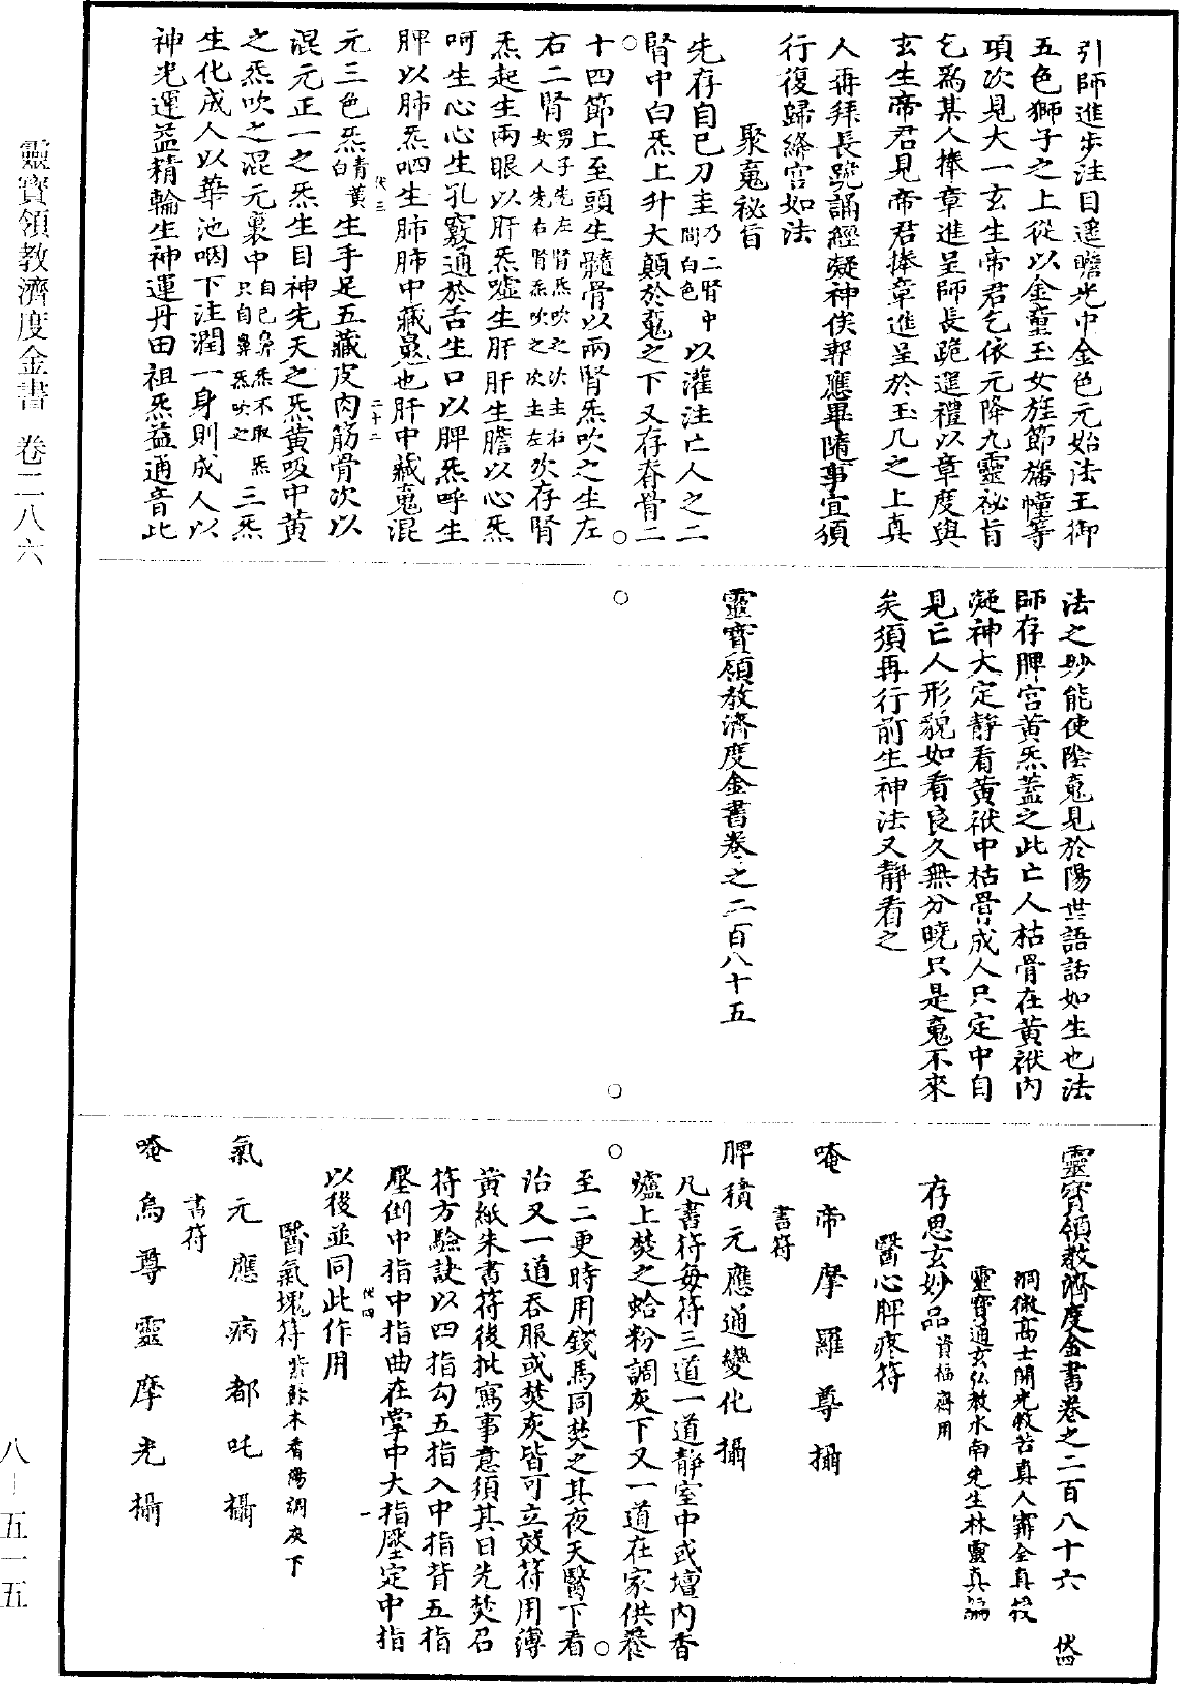 靈寶領教濟度金書 卷二八六
八—五一五
引師進步注目遥瞻光中金色元始法王御
五色獅子之上從以金童玉女旌節旛幢等
項次見大一玄生帝君乞依元降九靈祕旨
乞爲某人捧章進呈師長跪運禮以章度與
玄生帝君見帝君捧章進呈於玉几之上真
人再拜長跪誦經凝神俟報應畢隨事宜須
行復歸絳宫如法
聚䰟祕旨
先存自已刀圭乃二腎中間白色以灌注亡人之二
腎中白炁上升大顛於䰟之下又存脊骨二
十四節上至頭生髓骨以兩腎炁吹之生左
右二腎男子先左腎炁吹之次主右女人先右腎炁吹之次主左次存腎
炁起生兩眼以肝炁噓生肝肝生膽以心炁
呵生心心生孔竅通於舌生口以脾炁呼生
脾以肺炁呬生肺肺中藏䰟也肝中藏䰟混
元三色炁青黄白生手足五藏皮肉筋骨次以
混元正一之炁生目神先天之炁黄吸中黄
之炁吹之混元裏中自已鼻炁不取炁只自鼻炁吹之三炁
生化成人以華池咽下注潤一身則成人以
神光運益精輪生神運丹田祖炁益通音此
法之妙能使陰䰟見於陽世語話如生也法
師存脾宫黄炁蓋之此亡人枯骨在黄袱内
凝神大定靜看黄袱中枯骨成人只定中自
見亡人形貌如看良久無分曉只是䰟不來
矣須再行前生神法又靜看之
靈寶領教濟度金書卷之二百八十五
靈寶領教濟度金書卷之二百八十六
洞微高士開光救苦真人甯全真授
靈寶通玄弘教水南先生林靈真編
存思玄妙品資福齋用
醫心脾疼符
唵帝摩羅尊攝
書符
脾積元應通變化攝
凡書符每符三道一道靜室中或壇内香
爐上焚之蛤粉調灰下又一道在家供養
至二更時用錢馬同焚之其夜天醫下看
治又一道吞服或焚灰皆可立效符用薄
黄紙朱書符後批寫事意須其日先焚召
符方驗訣以四指勾五指入中指背五指
壓倒中指中指曲在掌中大指壓定中指
以後並同此作用
醫氣塊符紫蘇木香湯調灰下
氣元應病都吒攝
書符
唵烏尊靈摩光攝